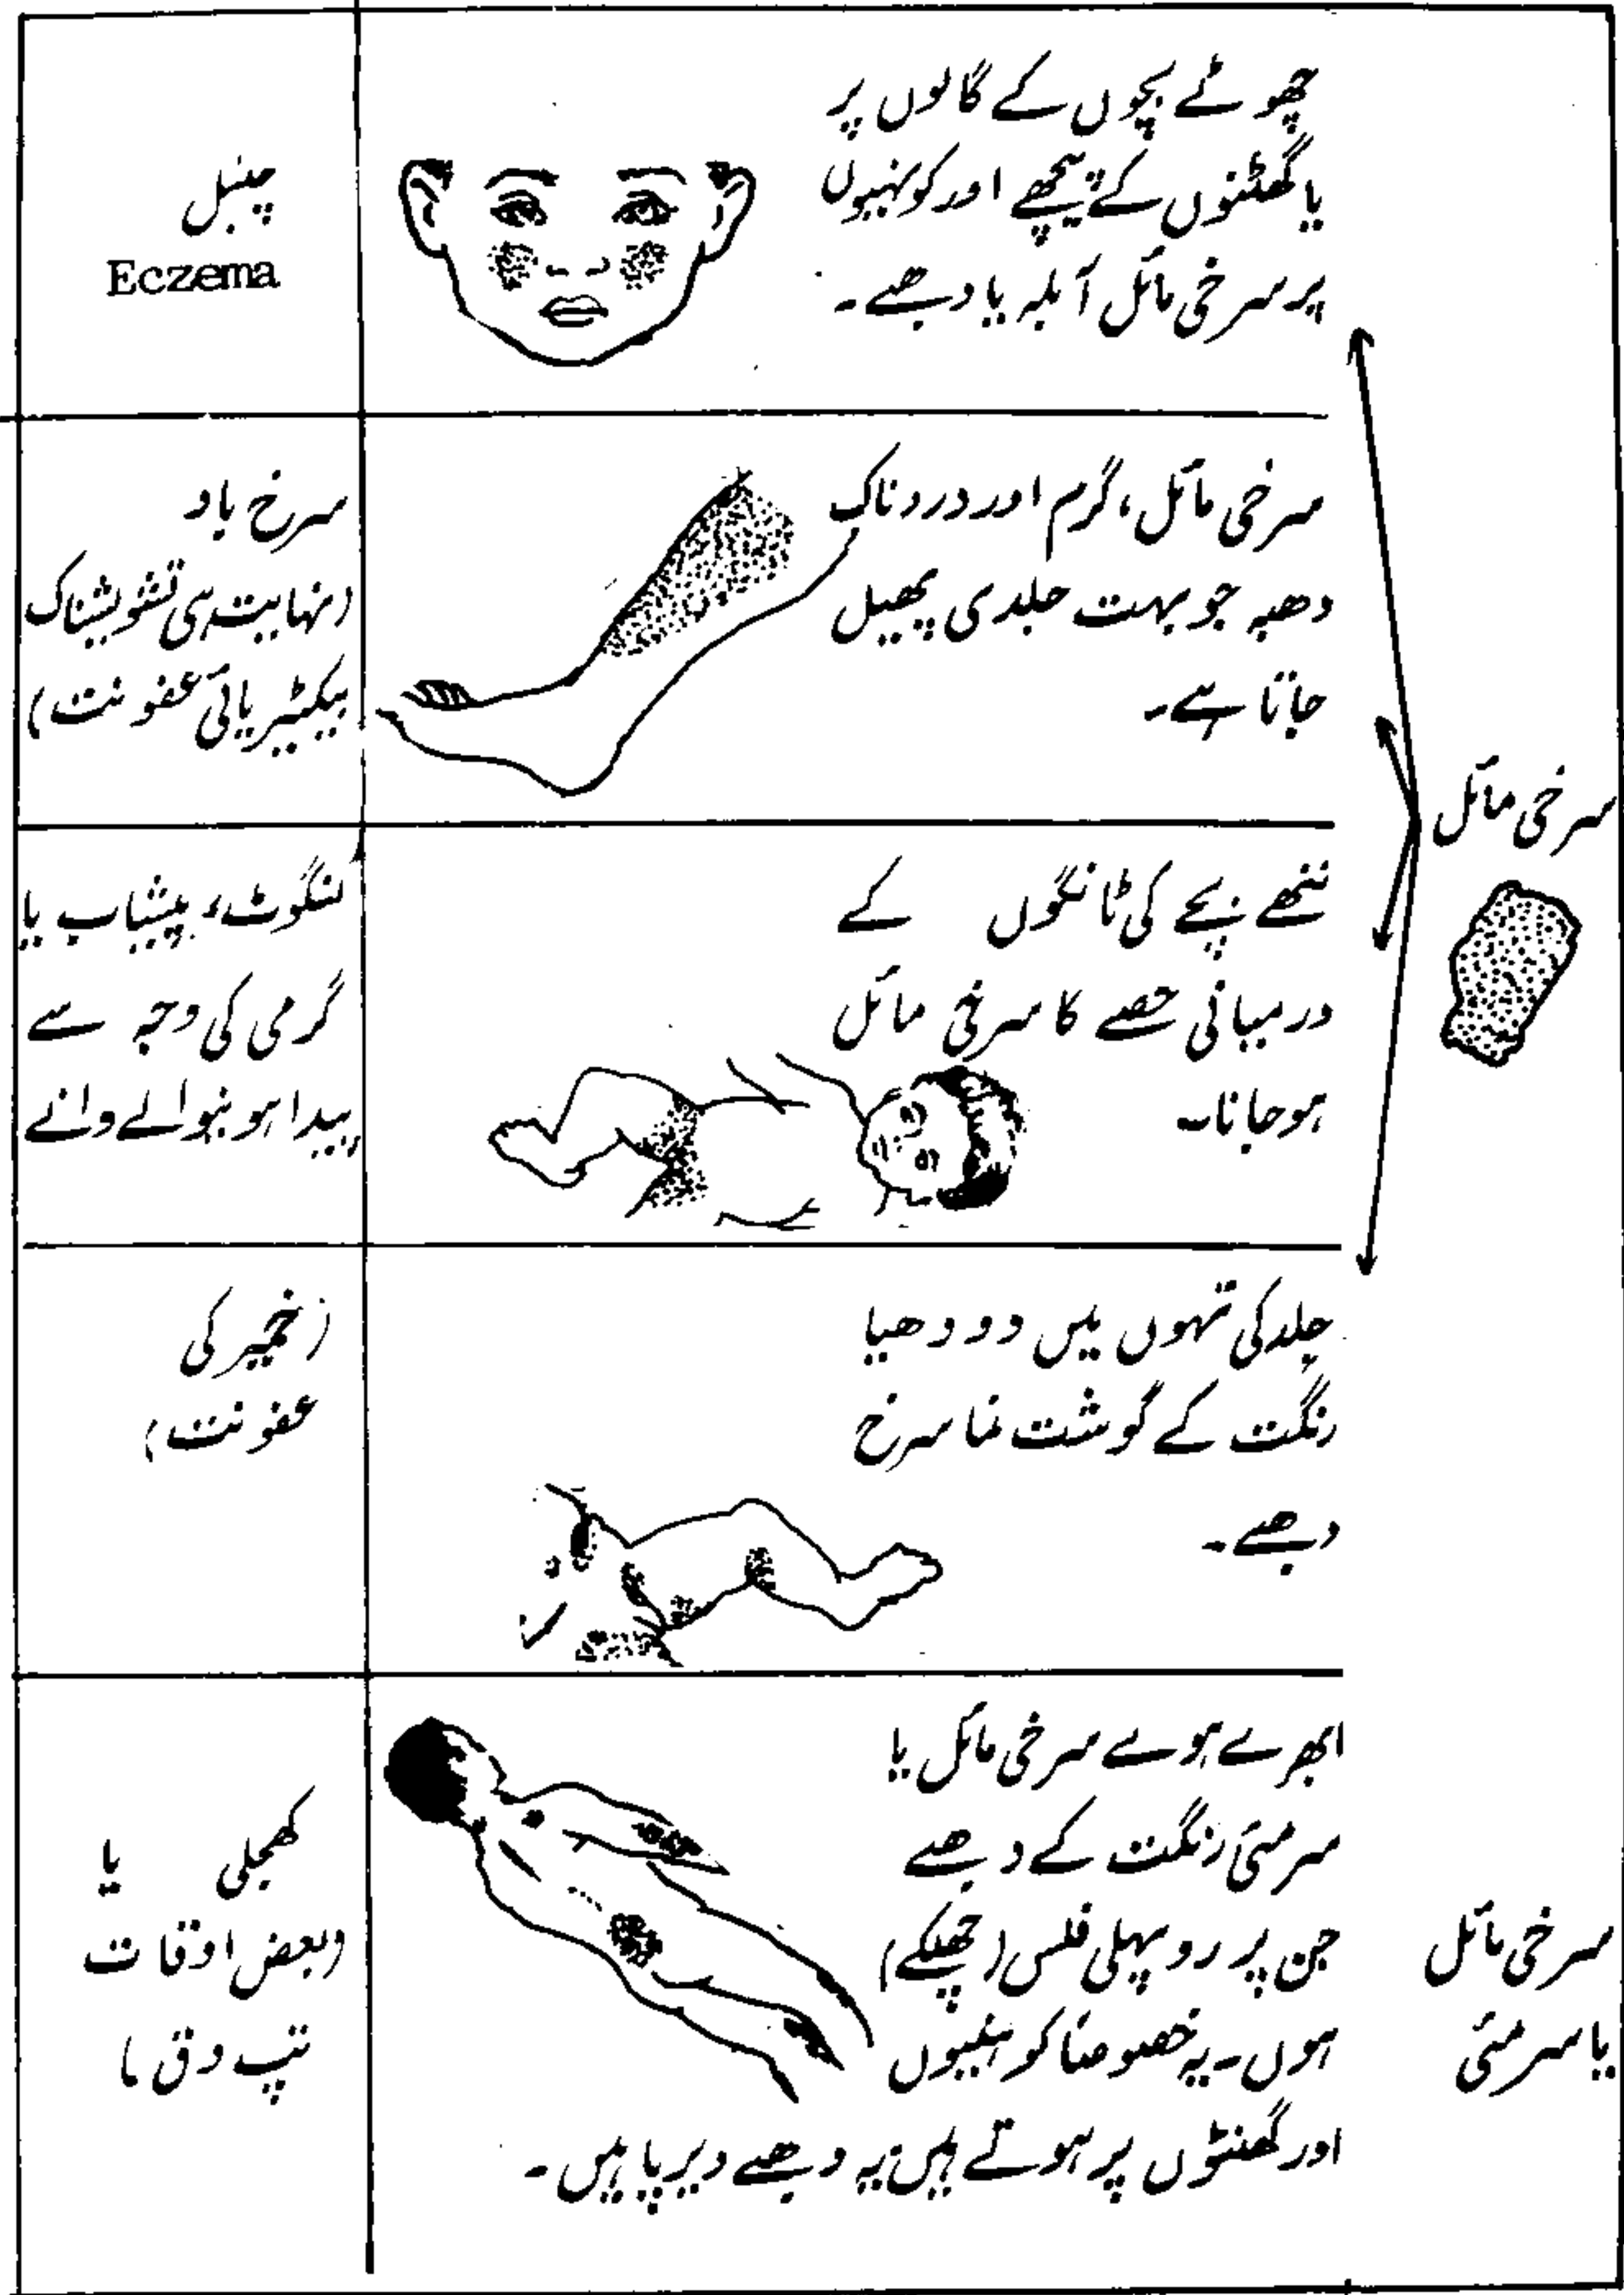 سرخی مائل
چھوٹے بچوں کے گالوں پر
یا گھٹنوں کے پیچھے اور کوہنیوں
پر سرخی مائل آبلہ یا دھبے۔
چنبل
Eczema
سرخی مائل، گرم اور دردناک
دھبہ جو بہت جلدی پھیل
جاتا ہے۔
سرخ باد
(نہایت ہی تشویشناک
بیکٹیریائی عفونت)
ننھے بچے کی ٹانگوں کے
درمیانی حصے کا سرخی مائل
ہوجانا۔
لنگوٹ، پیشاب یا
گرمی کی وجہ سے
پیدا ہونیوالے دانے
جلد کی تہوں میں دودھیا
رنگت کے گوشت نما سرخ
دھبے۔
(خمیر کی
عفونت)
سرخی مائل
یا سرمئی
ابھرے ہوے سرخی مائل یا
سرمئی رنگت کے دھبے
جن پر روپہلی فلس (چھلکے)
ہوں۔ یہ خصوصاً کوہنیوں
اور گھٹنوں پر ہوتے ہیں یہ دھبے دیرپا ہیں۔
کھجلی یا
(بعض اوقات
تپ دق)